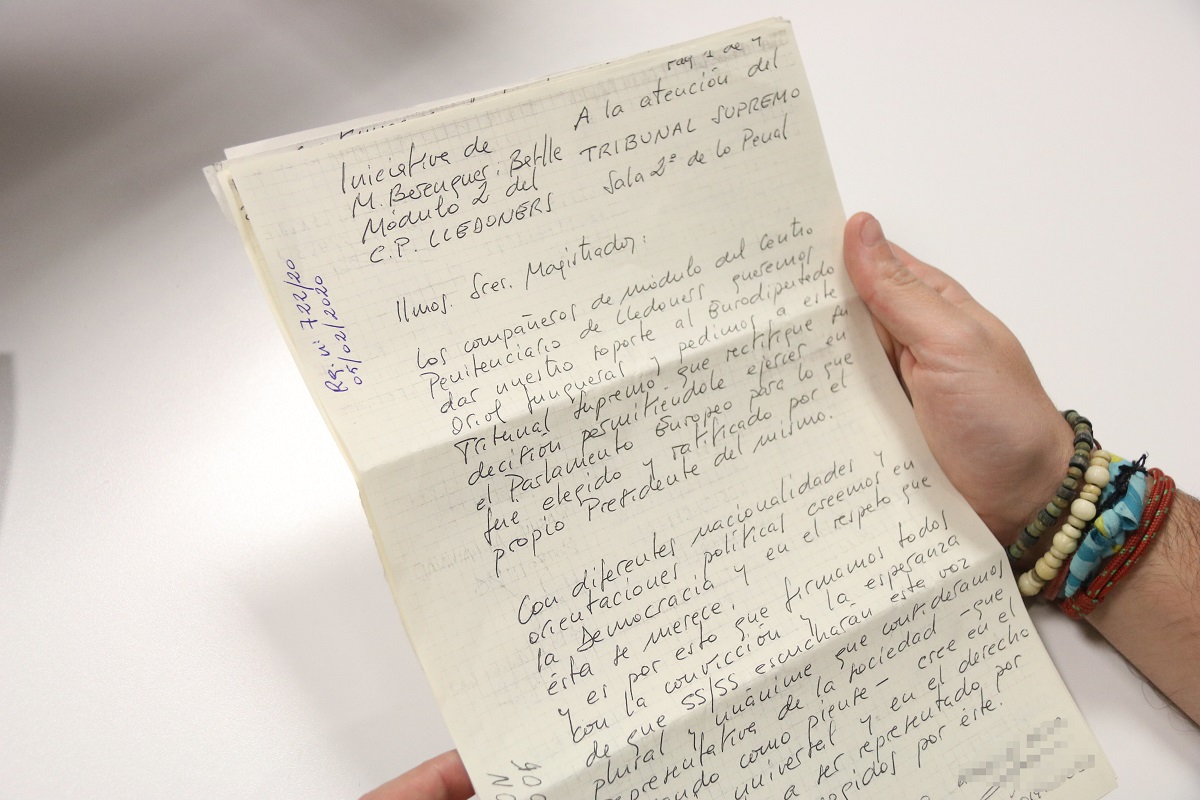 Pág 1 de 4
A la atención del
TRIBUNAL SUPREMO
Sala 2ª de lo Penal
Iniciativa de
M. Berenguer i Batlle
Módulo 2 del
C.P. LLEDONERS
Rg. nº 722/20
05/02/2020
Ilmos. Sres. Magistrados:
Los compañeros de módulo del Centro
Penitenciario de Lledoners queremos
dar nuestro soporte al Eurodiputado
Oriol Junqueras y pedimos a este
Tribunal Supremo que rectifique su
decisión permitiéndole ejercer en
el Parlamento Europeo para lo que
fue elegido y ratificado por el
propio Presidente del mismo.
Con diferentes nacionalidades y
orientaciones políticas creemos en
la Democracia y en el respeto que
ésta se merece,
y es por esto que firmamos todos
con la convicción y la esperanza
de que SS/SS escucharán esta voz
plural y unánime que consideramos
representativa de la sociedad - que
como piense - cree en el
universal y en el derecho
a ser representado por
por éste.